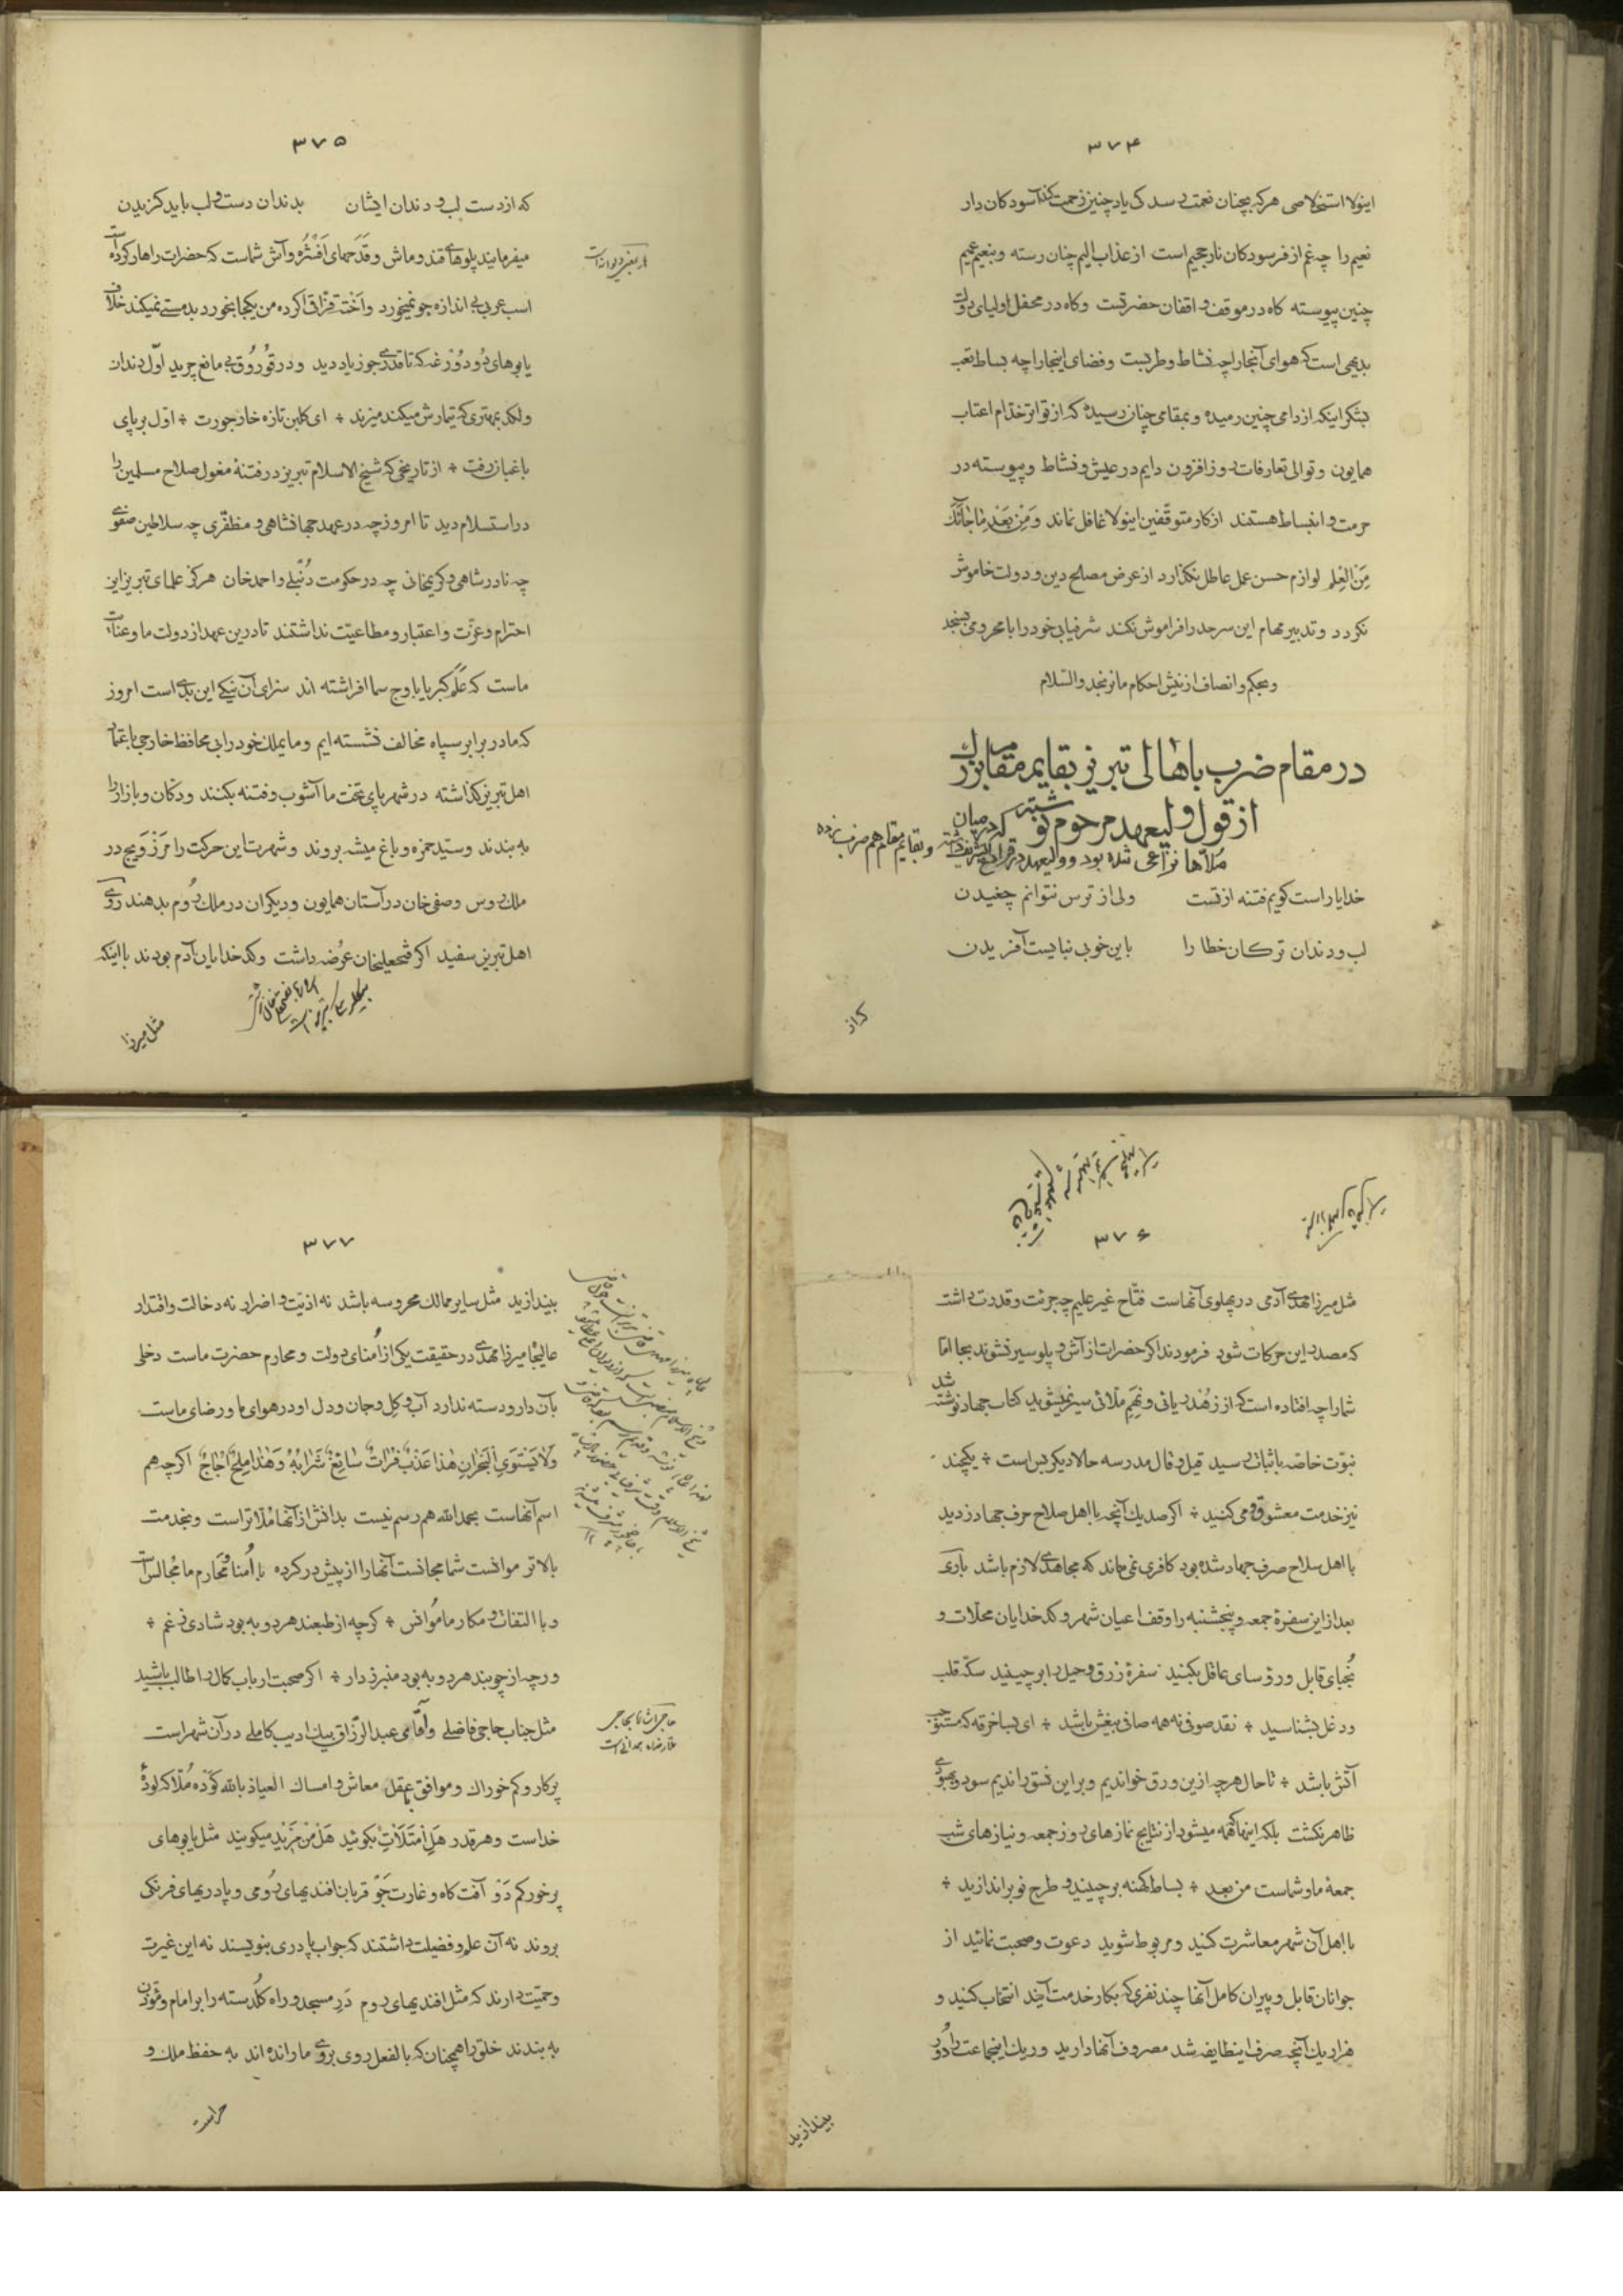 ۳۷۴
اینولا استخلاصی هرکه بچنان نعمت رسد کی یاد چنین زحمت کند آسودکان دار
نعیم را چه غم از فرسودکان نار جحیم است از عذاب الیم چنان رسته و بنعیم عمیم
چنین پیوسته کاه در موقف واقفان حضرتست و کاه در محفل اولیای دولت
بدیهی است که هوای آنجا را چه نشاط و طربست و فضای اینجا را چه بساط تعب
بشکر اینکه از دامی چنین رمیده و بمقامی چنان رسیده که از تواتر خدّام اعتاب
همایون و توالی تعارفات روزافزون دایم در عیش و نشاط و پیوسته در
حرمت و انبساط هستند از کار متوقّفین اینولا غافل نماند وَمِن بَعْدِ مٰاجٰاءَکَ
مِنَ الْعِلم لوازم حسن عمل عاطل نکذارد از عرض مصلح دین و دولت خاموش
نکردد و تدبیر مهام این سرحد را فراموش نکند شرفیابی خود را با محرومی بسنجد
و بحکم و انصاف از نیش احکام ما نرنجد والسّلام
در مقام ضرب باهالی تبریز بقایم مقام بزرک
از قول ولیعهد مرحوم نوشته که در میان
ملّاها نزاعی شده بود و ولیعهد در قراباغ تشریف داشته و بقایم مقام هم ضرب زده
خدایا راست کویم فتنه از تست ولی از ترس نتوانم چغیدن
لب و دندان ترکان خطا را باین خوبی نبایست آفریدن
که از
۳۷۵
که از دست لب و دندان ایشان بدندان دست و لب باید کزیدن
میفرمایند پلوهای قند و ماش و قدحهای اَفْشُره و آش شماست که حضرات را هار کرده است
اسب عربی بی اندازه جو نمیخورد و اَخْته قزّاق اکر ده من یکجا بخورد بدمستی نمیکند خلاف
یابوهای دُودُوْزغه که تا قدری جو زیاد دید و در قُورُوْق بی مانع چرید اوّل دندان
و لکد بمهتری که تیمارش میکند میزند ÷ ای کلبن تازه خار جورت ÷ اوّل بر پای
باغبان رفت ÷ از تاریخی که شیخ الاسلام تبریز در فتنهٔ مغول صلاح مسلمین را
در استسلام دید تا امروز چه در عهد جهانشاهی و مظفّری چه سلاطین صفوی
چه نادرشاهی و کریمخانی چه در حکومت دُنْبُلی و احمدخان هرکز علمای تبریز این
احترام و عزّت و اعتبار و مطاعیّت نداشتند تا درین عهد از دولت ما و عنایت
ماست که عَلَم کبر یا باوج سما افراشته اند سزای آن نیکی این بدی است امروز
که ما در برابر سپاه مخالف نشسته ایم و ما یملک خود را بی محافظ خارجی باعتماد
اهل تبریز کذاشته در شهر پای تخت ما آشوب و فتنه بکنند و دکان و بازار را
به بندند و سیّد حمزه و باغ میشه بروند و شهرت این حرکت را مَرزَویج در
ملک روس و صفی خان در آستان همایون و دیکران در ملک رُوم بدهند روی
اهل تبریز سفید اکر فتحعلیخان عُرضه داشت و کدخدایان آدم بودند با اینکه
مثل میرزا
۳۷۶
مثل میرزا مهدی آدمی در پهلوی آنهاست فتّاح غیر علیم چه جرئت و قدرت داشت
که مصدر این حرکات شود فرمودند اکر حضرات از آش و پلو سیر نشوند بجا امّا
شما را چه افتاده است که از زُهْد ریائی و نَهَم ملّائی سیر نمیشوید کتاب جهاد نوشته شد
نبوّت خاصّه باثبات رسید قیل و قال مدرسه حالا دیکر بس است ÷ یکچند
نیز خدمت معشوق و می کنید ÷ اکر صد یک آنچه با اهل صلاح حرف جهاد زدید
با اهل سلاح صرف جهاد شده بود کافری نمی ماند که مجاهدی لازم باشد باری
بعد از این سفرهٔ جمعه و پنجشنبه را وقف اعیان شهر و کدخدایان محلّات و
نُجبای قابل و رؤسای عاقل بکنید سفرهٔ زرق و حیل را برچینید سکّه قلب
و دغل بشناسید ÷ نقد صوفی نه همه صافی بیغش باشد ÷ ای بسا خرقه که مستوجب
آتش باشد ÷ تا حال هرچه ازین ورق خواندیم و بر این نسق راندیم سود و بهبودی
ظاهر نکشت بلکه اینها که میشود از نتایج نمازهای روز جمعه و نیازهای شب
جمعهٔ ما و شماست من بعد ÷ بساط کهنه برچینید و طرح نو براندازید ÷
با اهل آن شهر معاشرت کنید و مربوط شوید دعوت و صحبت نمائید از
جوانان قابل و پیران کامل آنها چند نفری که بکار خدمت آیند انتخاب کنید و
هزار یک آنچه صرف اینطایفه شد مصروف آنها دارید و ریک اینجماعت را دُور
بیندازید
۳۷۷
بیندازید مثل سایر ممالک محروسه باشد نه اذیّت و اضرار نه دخالت و اقتدار
عالیجاه میرزا مهدی در حقیقت یکی از اُمنای دولت و محارم حضرت ماست دخلی
بآن دار و دسته ندارد آب و کِل و جان و دل او در هوای ما و رضای ماست
وَلٰا یَسْتَوِی الْبَحْرٰانِ هٰذٰا عَذْبٌ فُرٰاتٌ سٰائِغٌ شَرٰابُهُ وَهٰذٰا مِلْحٌ اُجٰاجٌ اکرچه هم
اسم آنهاست بحمدالله هم رسم نیست بدانش از آنها مُلّاتر است و بخدمت
بالاتر موانست شما مجانست آنها را از پیش در کرده با اُمنا و مَحَارم ما مُجالس است
و با التفات و مکارم ما مُوانس ÷ کرچه از طبعند هر دو به بود شادی ز غم ÷
ورچه از چوبند هر دو به بود منبر ز دار ÷ اکر صحبت ارباب کمال را طالب باشید
مثل جناب حاجی فاضلی و آقامی عبدالرّزاق بیک ادیب کاملی در آن شهر است
پرکار و کم خوراک و موافق بعقل معاش و امساک العیاذ بالله کوْدهٔ مُلّا که لودهٔ
خداست و هرقدر هَلِ اَمْتَلَأْتِ بکوئید هَلْ مِنْ مَزید میکویند مثل یابوهای
پرخور کم دَوْ آفت کاه و غارت جَو قربان افندیهای رُومی و پادریهای فرنکی
بروند نه آن علم و فضیلت داشتند که جواب پادری بنویسند نه این غیرت
و حمیّت دارند که مثل افندیهای روم دَرِ مسجد و راه کُلْدسته را بر امام و مؤذّن
به بندند خلق را همچنان که بالفعل روی بروی ما رانده اند به حفظ ملک و
حراست